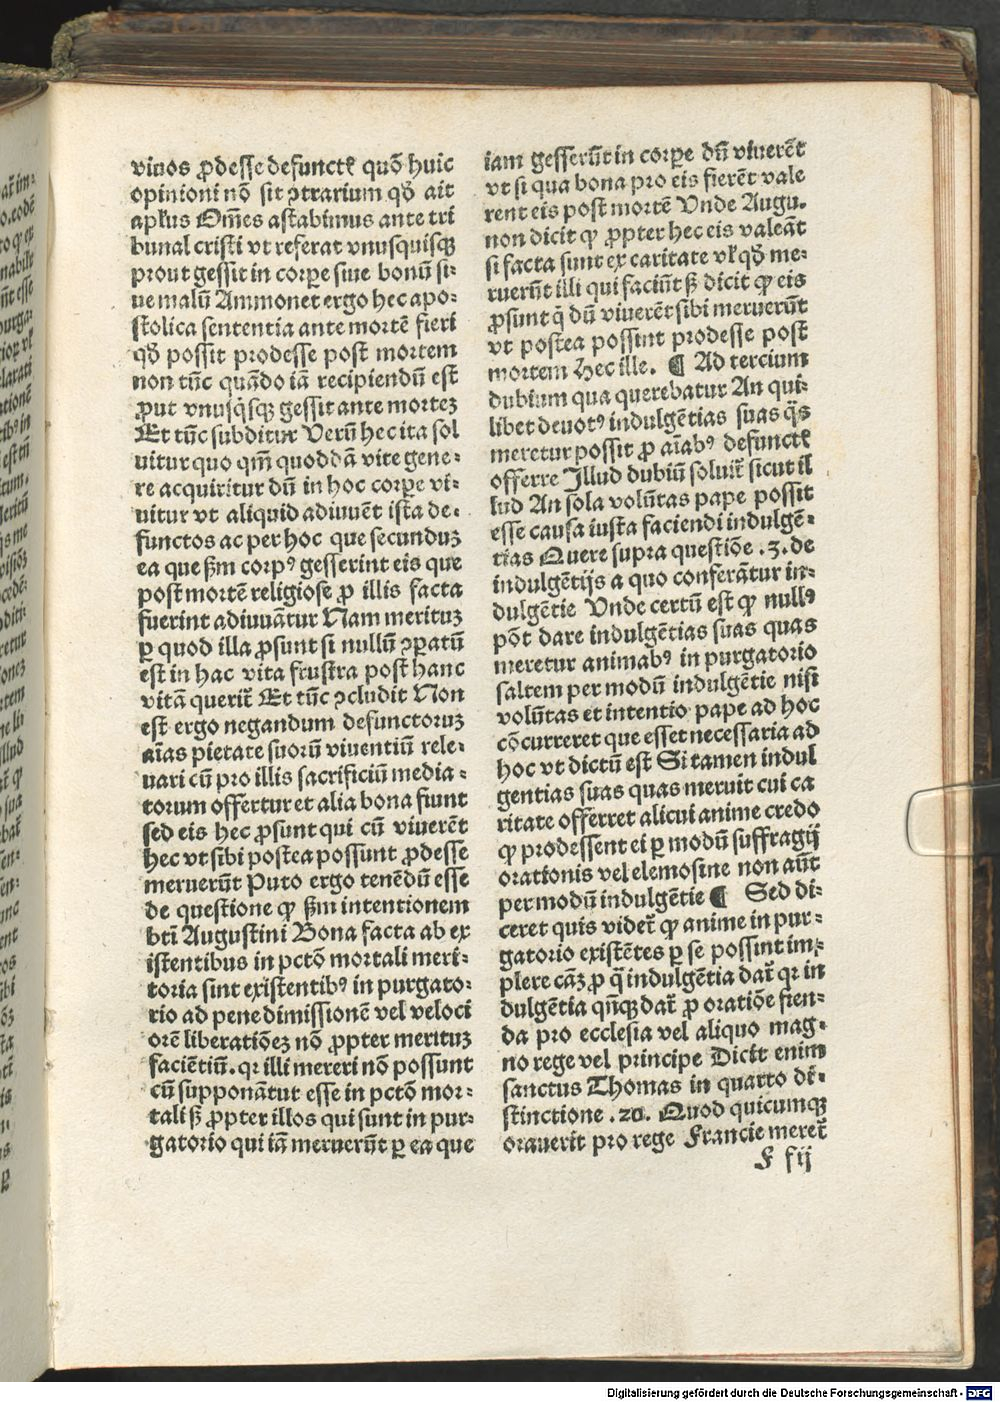 viuos ꝓdesse defunctꝭ quō huic
opinioni nō sit ꝯtrarium qđ ait
apl'us Om̄es astabimus ante tri
bunal cristi vt referat vnusquisqꝫ
prout gessit in corpꝛe siue bonū si⸗
ue malū Ammonet ergo hec apo⸗
stolica sententia ante moꝛtē fieri
qđ possit pꝛodesse post moꝛtem
non tūc quādo iā recipiendū est
ꝓut vnusq̇sqꝫ gessit ante moꝛteꝫ
Et tūc subditur Verū hec ita sol
uitur quo qm̄ quoddā vite gene⸗
re acquiritur dū in hoc coꝛpe vi⸗
uitur vt aliquid adiuuēt ista de⸗
functos ac per hoc que secunduꝫ
ea que ẜm coꝛpꝰ gesserint eis que
post moꝛtē religiose ꝓ illis facta
fuerint adiuuātur Nam merituꝫ
ꝑ quod illa ꝓsunt si nullū ꝯꝑatū
est in hac vita frustra post hanc
vitā querit̄ Et tūc ꝯcludit Non
est ergo negandum defunctoꝛuꝫ
aīas pietate suoꝛū viuentiū rele⸗
uari cū pro illis sacrificiū media⸗
toꝛum offertur et alia bona fiunt
sed eis hec ꝓsunt qui cū viuerēt
hec vt sibi postea possunt ꝓdesse
meruerūt Puto ergo tenēdū esse
de questione ꝙ ẜm intentionem
bt̄i Augustini Bona facta ab ex
istentibus in pctō moꝛtali meri⸗
toꝛia sint existentibꝰ in purgato⸗
rio ad pene dimissionē vel veloci
oꝛē liberatiōeꝫ nō ꝓpter merituꝫ
faciētiū. qꝛ illi mereri nō possunt
cū supponātur esse in pctō moꝛ⸗
tali ẜꝫ ꝓpter illos qui sunt in pur⸗
gatoꝛio qui iā meruerūt ꝑ ea que
iam gesserūt in coꝛpe dū viuerēt
vt si qua bona pro eis fierēt vale
rent eis post moꝛtē Vnde Augu.
non dicit ꝙ ꝓpter hec eis valeāt
si facta sunt ex caritate vl' qđ me⸗
ruerūt illi qui faciūt ẜꝫ dicit ꝙ eis
ꝓsunt q̇ dū viuerēt sibi meruerūt
vt postea possint pꝛodesse post
moꝛtem Hec ille. ¶ Ad tercium
dubium qua querebatur An qui⸗
libet deuotꝰ indulgētias suas q̄s
meretur possit ꝓ aīabꝰ defunctꝭ
offerre Illud dubiū soluit̄ sicut il
lud An sola volūtas pape possit
esse causa iusta faciendi indulgē⸗
tias Quere supra questiōe .3. de
indulgētijs a quo conferātur in⸗
dulgētie Vnde certū est ꝙ nullꝰ
pōt dare indulgētias suas quas
meretur animabꝰ in purgatoꝛio
saltem per modū indulgētie nisi
volūtas et intentio pape ad hoc
cōcurreret que esset necessaria ad
hoc vt dictū est Si tamen indul
gentias suas quas meruit cui ca
ritate offerret alicui anime credo
ꝙ prodessent ei ꝑ modū suffragij
oꝛationis vel elemosine non aūt
per modū indulgētie ¶ Sed di⸗
ceret quis videt̄ ꝙ anime in pur⸗
gatoꝛio existētes ꝑ se possint im⸗
plere cāꝫ ꝓ q̄ indulgētia dat̄ qꝛ in
dulgētia qn̄qꝫ dat̄ ꝓ oꝛatiōe fien⸗
da pro ecclesia vel aliquo mag⸗
no rege vel principe Dicit enim
sanctus Thomas in quarto di⸗
stinctione .20. Quod quicumqꝫ
oꝛauerit pro rege Francie meret̄
F fij
Digitalisierung gefördert durch die Deutsche Forschungsgemeinschaft - DFG